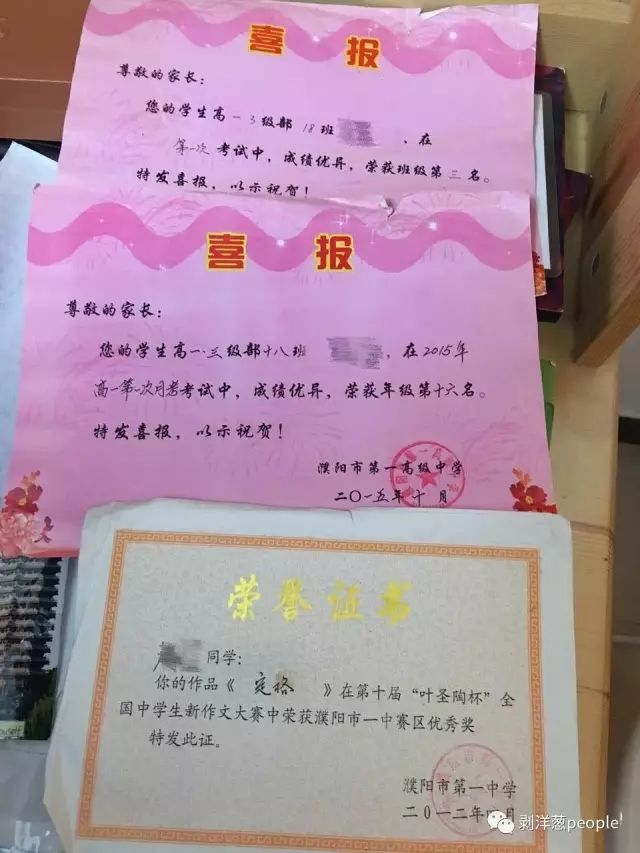 喜报
尊敬的家长：
您的学生高一3级部 18班，在
第一次考试中，成绩优异，荣获班级第三名。
特发喜报，以示祝贺！
喜报
尊敬的家长：
您的学生高一·三级部十八班，在2015年
高一第一次月考考试中，成绩优异，荣获年级第十六名。
特发喜报，以示祝贺！
濮阳市第一高级中学
二〇一五年十月
荣誉证书
同学：
你的作品《定格》在第十届“叶圣陶杯”全
国中学生新作文大赛中荣获濮阳市一中赛区优秀奖
特发此证。
濮阳市第一中学
二〇一二年 月
剥洋葱people